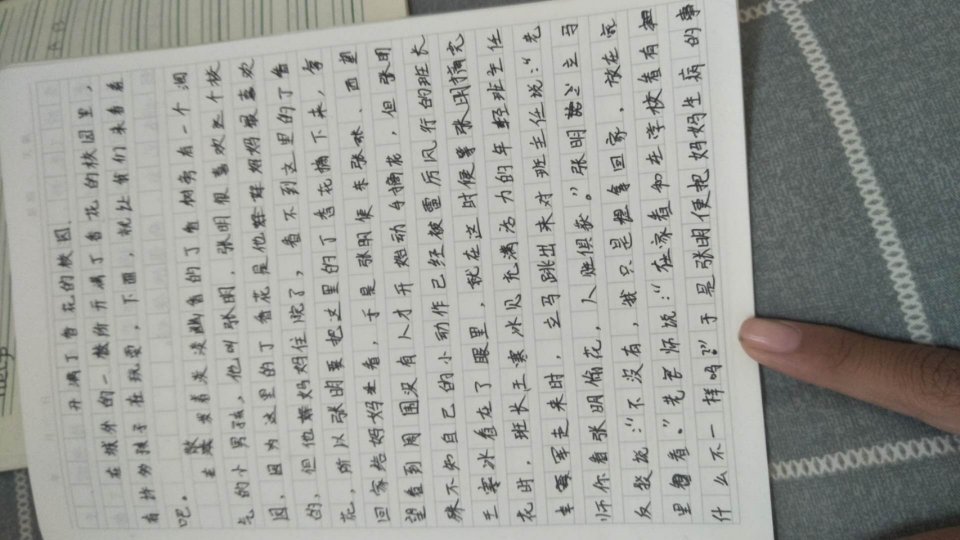 开满了香花的校园
在城外的一教所开满了香花的校园里,
有许多孩子在玩耍,下面,就让我们来看看
吧。
在散发着淡淡幽香的丁香树旁有一个淘
气的小男孩,他叫张明,张明很喜欢这个校
园,因为这里的丁香花是他妈妈最喜欢
的,但他妈妈住院了,看不到这里的丁香
花,所以张明要把这里的丁香花摘下来,拿
回家给妈妈坐看,于是张明便东张张、西望
望看到周围没有人才开始动手摘花,但张明
殊不知自己的小动作已经被雷厉风行的班长
王寒冰看在了眼里,就在这时便等张明摘完
花时,班长王寒冰见充满活力的年轻班主任
李军走来时,立马跳出来对班主任说:“先
师你看张明偷花,人赃俱获。”张明立马
反驳说:“不没有,我只是想拿回家,放在家
里看看。”老师说:“在家看和在学校看有
什么不一样吗?”于是张明便把妈妈生病的事